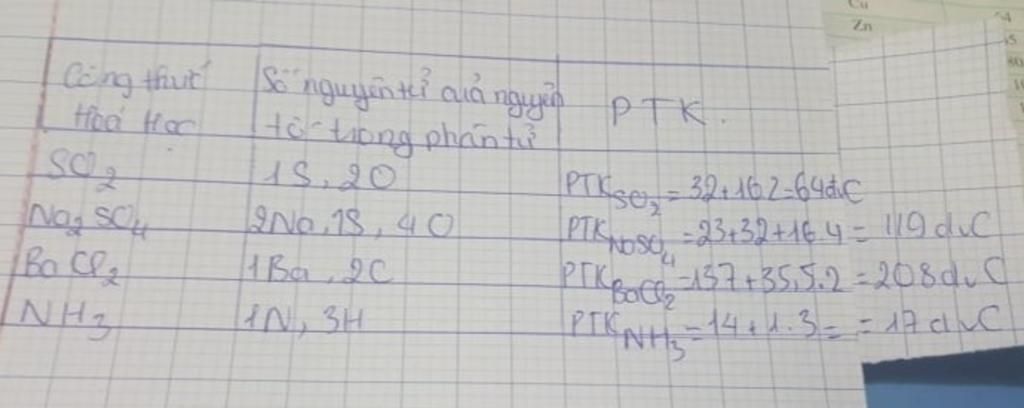 Cu
Zn
Công thức Số nguyên tử của nguyên PTK.
Hoá Học tố trong phân tử
SO₂ 1S, 2O PTK SO₂ = 32+16.2=64đvC
Na₂SO₄ 2Na, 1S, 4O PTK NaSO₄ = 23+32+16.4 = 119 đvC
BaCl₂ 1Ba, 2C PTK BaCl₂ = 137+35,5.2 = 208đvC
NH₃ 1N, 3H PTK NH₃ = 14+1.3= = 17đvC